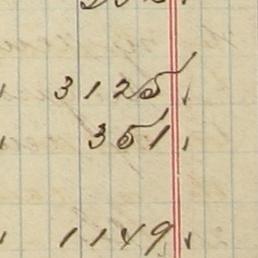 3125
351
1149